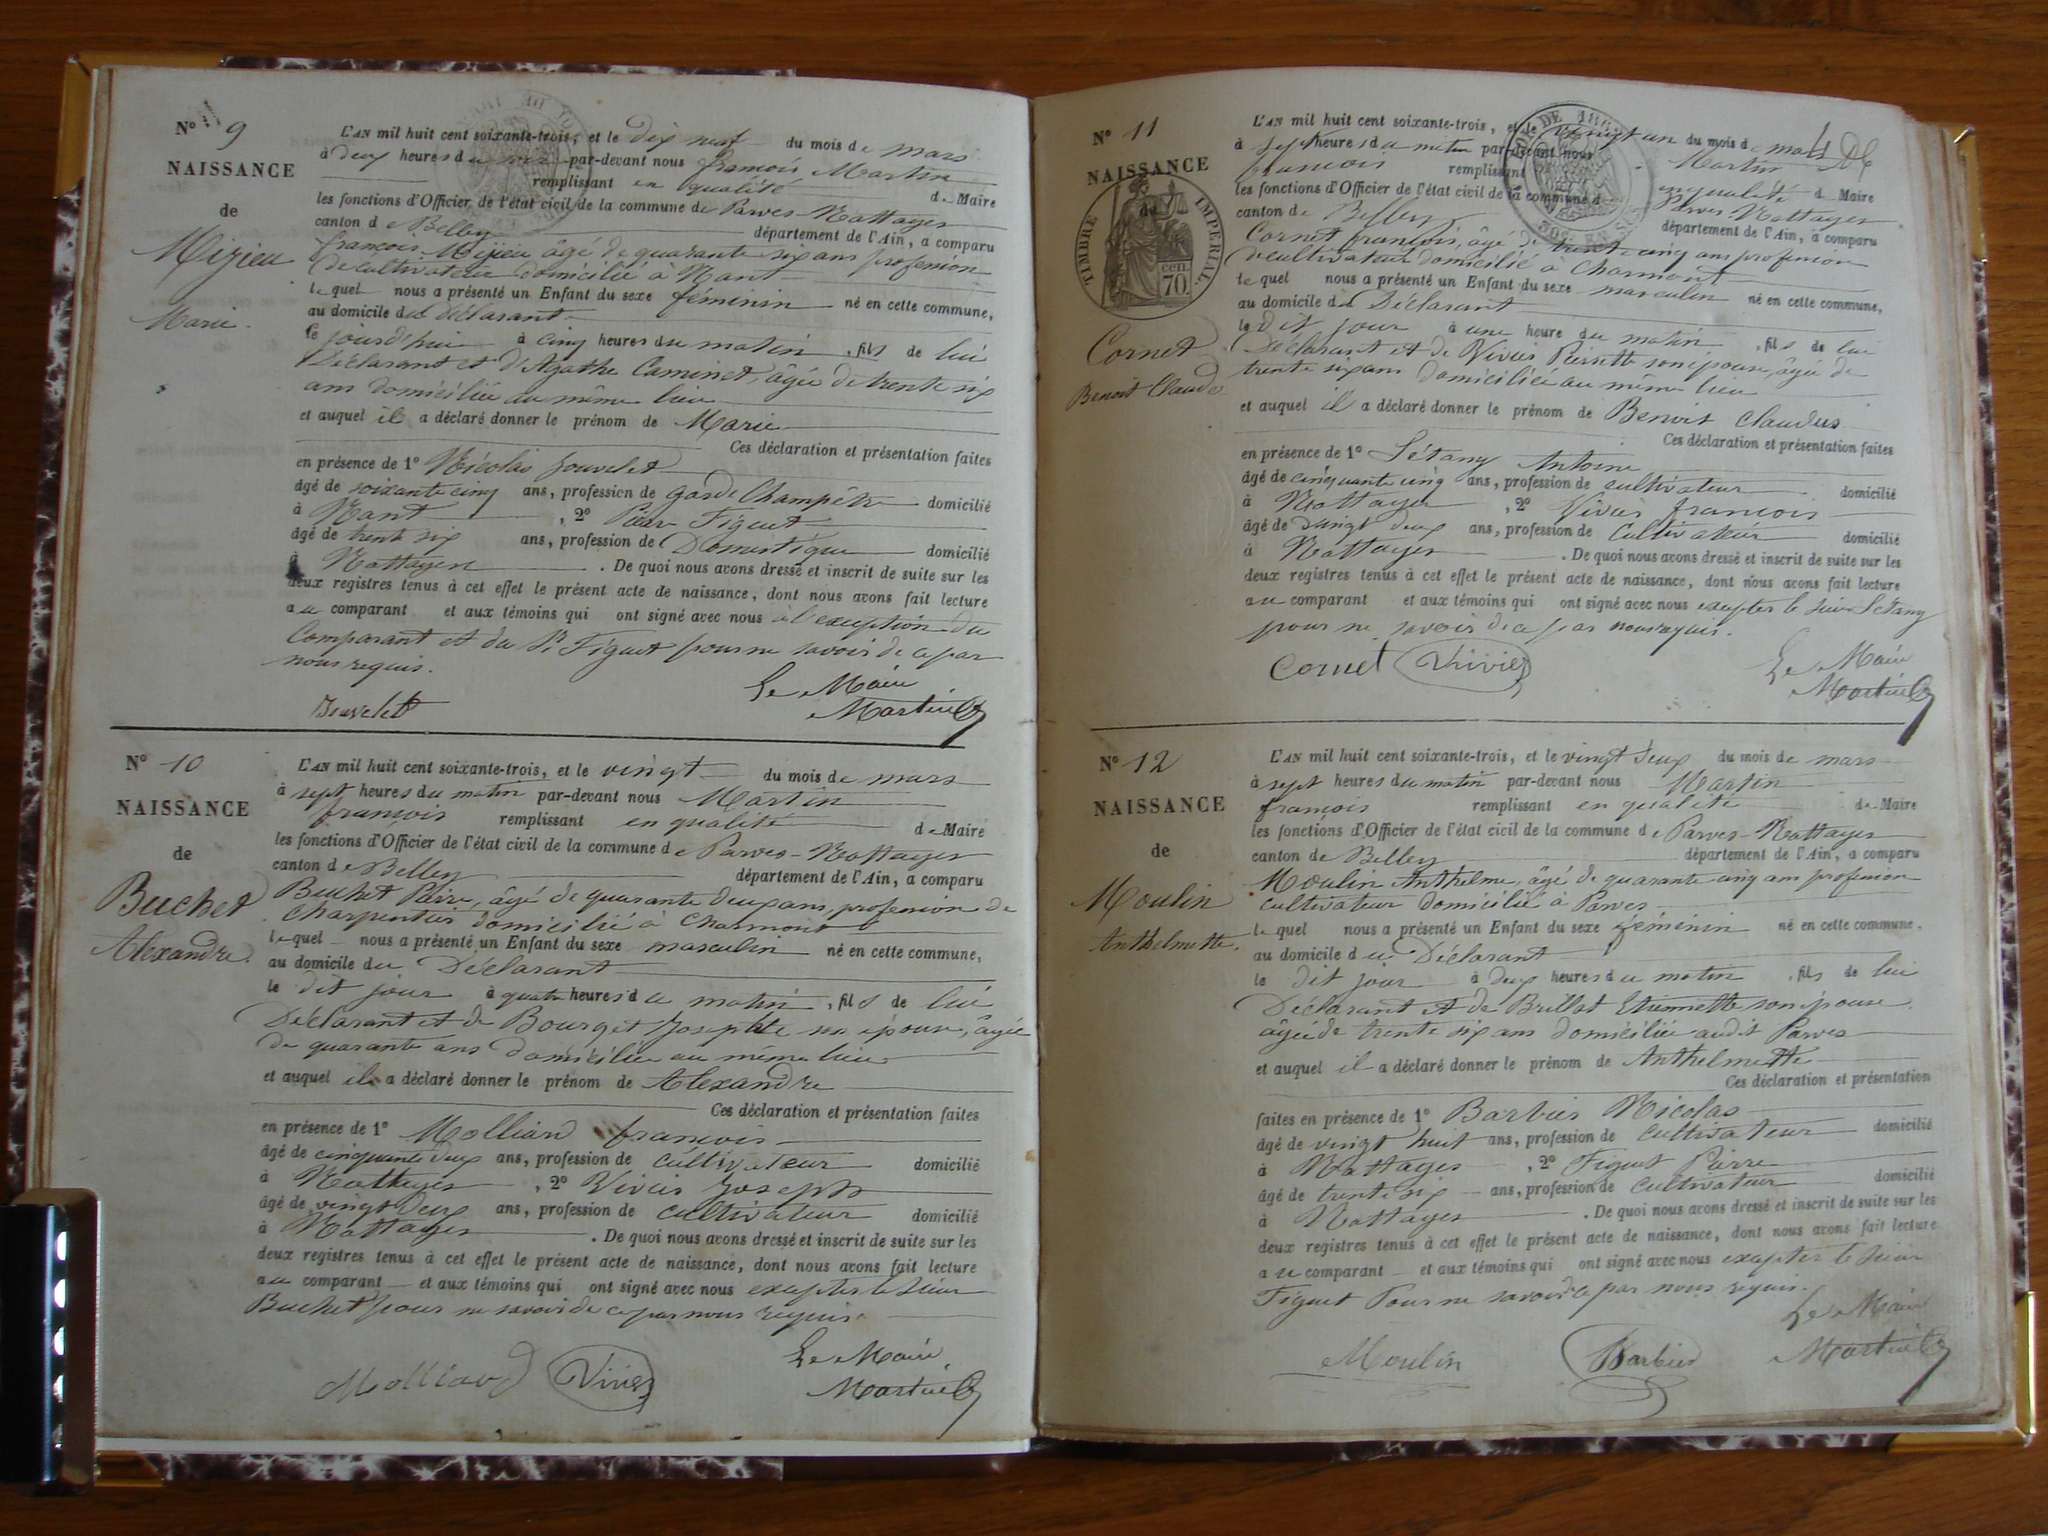 N° 9
NAISSANCE
de
Mizieu
Marie.
L'AN mil huit cent soixante-trois, et le dix neuf du mois de mars
à deux heures du soir par-devant nous françois Martin
remplissant en qualité de Maire
les fonctions d'Officier de l'état civil de la commune de Parves-Nattages
canton de Belley département de l'Ain, a comparu
françois Mizieu âgé de quarante six ans profession
de cultivateur domicilié à Nant
lequel nous a présenté un Enfant du sexe féminin né en cette commune,
au domicile du déclarant
le jourd'hui à cinq heures du matin, fils de lui
Déclarant et d'Agathe Caminet, âgée de trente six
ans domiciliée au même lieu
et auquel il a déclaré donner le prénom de Marie
Ces déclaration et présentation faites
en présence de 1° Nicolas Jouvelet
âgé de soixante cinq ans, profession de garde Champêtre domicilié
à Nant, 2° Pierre Figuet
âgé de trente six ans, profession de Domestique domicilié
à Nattages. De quoi nous avons dressé et inscrit de suite sur les
deux registres tenus à cet effet le présent acte de naissance, dont nous avons fait lecture
au comparant et aux témoins qui ont signé avec nous à l'exception du
Comparant et du Sr Figuet pour ne savoir de ce par
nous requis.
Jouvelet
Le Maire
Martin
N° 10
NAISSANCE
de
Buchet
Alexandre.
L'AN mil huit cent soixante-trois, et le vingt du mois de mars
à sept heures du matin par-devant nous Martin
françois remplissant en qualité de Maire
les fonctions d'Officier de l'état civil de la commune de Parves-Nattages
canton de Belley département de l'Ain, a comparu
Buchet Pierre, âgé de quarante deux ans, profession de
Charpentier domicilié à Charmont
lequel nous a présenté un Enfant du sexe masculin né en cette commune,
au domicile du Déclarant
le dit jour à quatre heures du matin, fils de lui
Déclarant et de Bourget Josephte son épouse, âgée
de quarante ans domiciliée au même lieu
et auquel il a déclaré donner le prénom de Alexandre
Ces déclaration et présentation faites
en présence de 1° Molliard françois
âgé de cinquante deux ans, profession de cultivateur domicilié
à Nattages, 2° Vivier Joseph
âgé de vingt deux ans, profession de cultivateur domicilié
à Nattages. De quoi nous avons dressé et inscrit de suite sur les
deux registres tenus à cet effet le présent acte de naissance, dont nous avons fait lecture
au comparant et aux témoins qui ont signé avec nous excepter le sieur
Buchet pour ne savoir de ce par nous requis.
Molliard Vivier
Le Maire
Martin
N° 11
NAISSANCE
de
TIMBRE IMPERIAL
70 cen.
Cornet
Benoit Claudus
L'AN mil huit cent soixante-trois, et le vingt un du mois de mars
à sept heures du matin par-devant nous Martin
françois remplissant en qualité de Maire
les fonctions d'Officier de l'état civil de la commune de Parves-Nattages
canton de Belley département de l'Ain, a comparu
Cornet françois, âgé de trente cinq ans profession
de cultivateur domicilié à Charmont
lequel nous a présenté un Enfant du sexe masculin né en cette commune,
au domicile du Déclarant
le dit jour à une heure du matin, fils de lui
Déclarant et de Vivier Pierrette son épouse, âgée de
trente six ans domiciliée au même lieu
et auquel il a déclaré donner le prénom de Benoit Claudus
Ces déclaration et présentation faites
en présence de 1° Létang Antoine
âgé de cinquante cinq ans, profession de cultivateur domicilié
à Nattages, 2° Vivier françois
âgé de vingt deux ans, profession de Cultivateur domicilié
à Nattages. De quoi nous avons dressé et inscrit de suite sur les
deux registres tenus à cet effet le présent acte de naissance, dont nous avons fait lecture
au comparant et aux témoins qui ont signé avec nous excepter le sieur Létang
pour ne savoir de ce par nous requis.
Cornet Vivier
Le Maire
Martin
N° 12
NAISSANCE
de
Moulin
Anthelmette.
L'AN mil huit cent soixante-trois, et le vingt deux du mois de mars
à sept heures du matin par-devant nous Martin
françois remplissant en qualité de Maire
les fonctions d'Officier de l'état civil de la commune de Parves-Nattages
canton de Belley département de l'Ain, a comparu
Moulin Anthelme, âgé de quarante cinq ans profession
cultivateur domicilié à Parves
lequel nous a présenté un Enfant du sexe féminin né en cette commune,
au domicile du Déclarant
le dit jour à deux heures du matin, fils de lui
Déclarant et de Brillat Etiennette son épouse
âgée de trente six ans domiciliée audit Parves
et auquel il a déclaré donner le prénom de Anthelmette
Ces déclaration et présentation
faites en présence de 1° Barbier Nicolas
âgé de vingt huit ans, profession de cultivateur domicilié
à Nattages, 2° Figuet Pierre
âgé de trente six ans, profession de cultivateur domicilié
à Nattages. De quoi nous avons dressé et inscrit de suite sur les
deux registres tenus à cet effet le présent acte de naissance, dont nous avons fait lecture
au comparant et aux témoins qui ont signé avec nous excepter le sieur
Figuet Pour ne savoir ce par nous requis.
Moulin Barbier
Le Maire
Martin